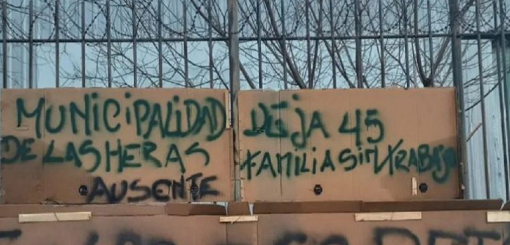 MUNICIPALIDAD
DE LAS HERAS
AUSENTE
DEJA 45
FAMILIA SIN TRABAJO